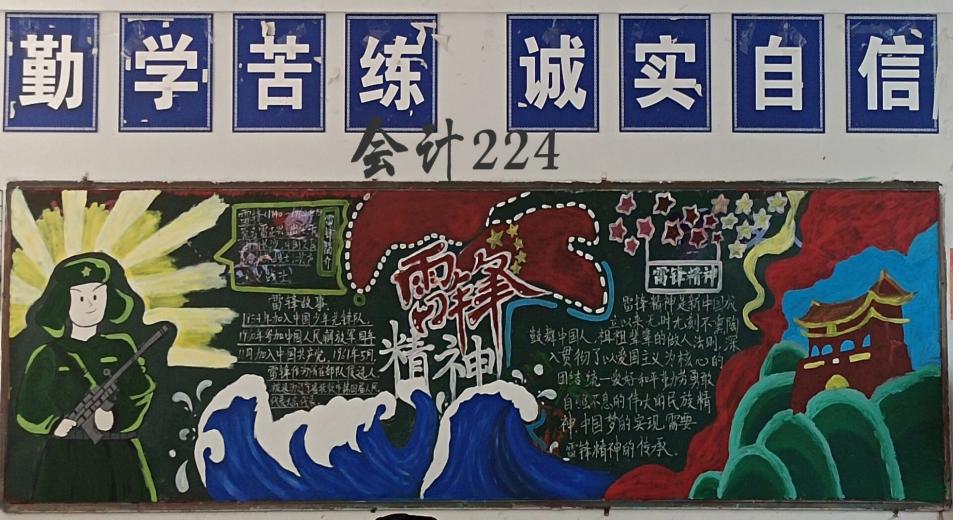 勤学苦练 诚实自信
会计224
雷锋简介
雷锋
精神
雷锋故事
1954年加入中国少年先锋队
1960年参加中国人民解放军同年
11月加入中国共产党,1961年5月
雷锋作为所在部队候选人
雷锋精神
雷锋精神是新中国成
立以来无时无刻不熏陶
鼓舞中国人,祖祖辈辈的做人法则,深
入贯彻了以爱国主义为核心的
团结统一爱好和平勤劳勇敢
自强不息的伟大的民族精
神,中国梦的实现,需要
雷锋精神的传承。